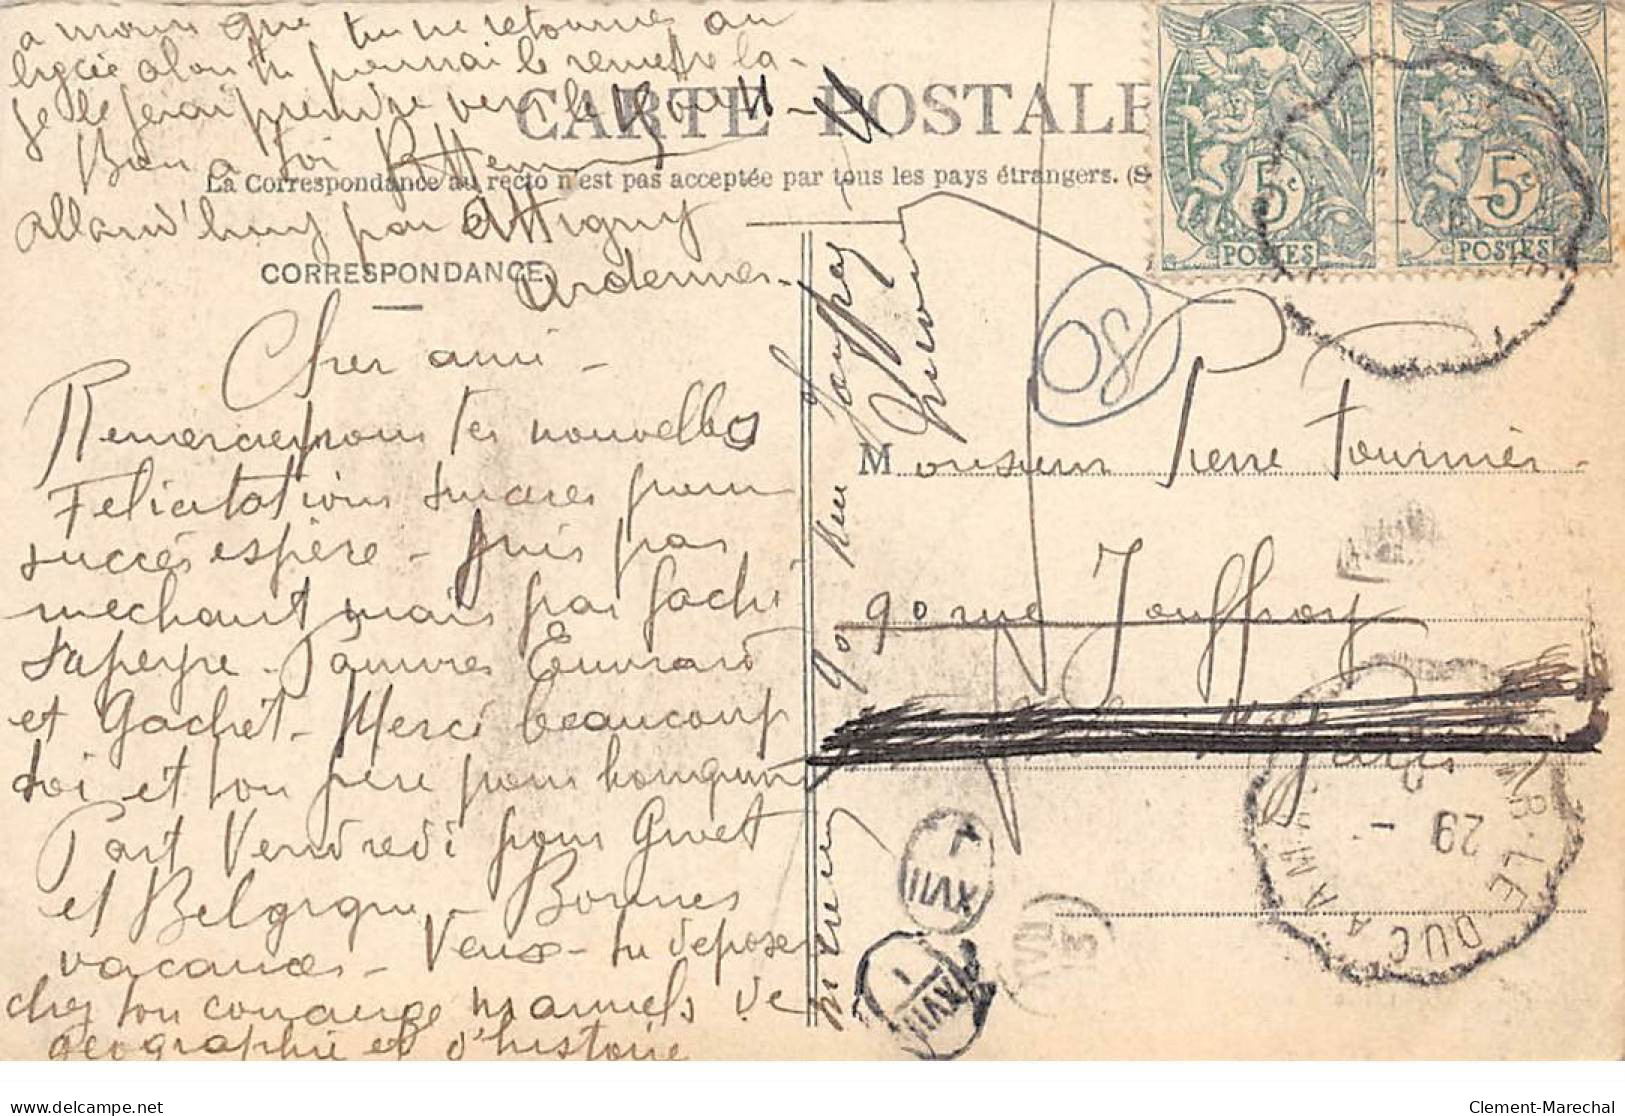 a moins que tu ne retournes au
lycée alors tu pourrai le remettre la -
je le ferai prendre vers le
Bien a toi
alland'huy par Attigny
Ardennes -
CARTE POSTALE
La Correspondance au recto n'est pas acceptée par tous les pays étrangers. (S
CORRESPONDANCE
Cher ami -
Remercie pour tes nouvelles
Félicitations sinceres pour
succès espère - suis pas
mechant mais pas faché
Lapeyre - Pauvres
et Gachet - Merci beaucoup
toi et ton père pour bouquin
Part Vendredi pour Givet
et Belgique - Bonnes
vacances - Veux-tu deposer
chez ton concierge manuels de
géographie et d'histoire
5c
POSTES
5c
POSTES
08
Monsieur Pierre Fournier -
90 rue Jouffroy
Paris
90 Rue Jouffroy
BAR-LE-DUC A AM
29
XVII
1
XVII
15
XVII
1
delcampe.net
Clement-Marechal